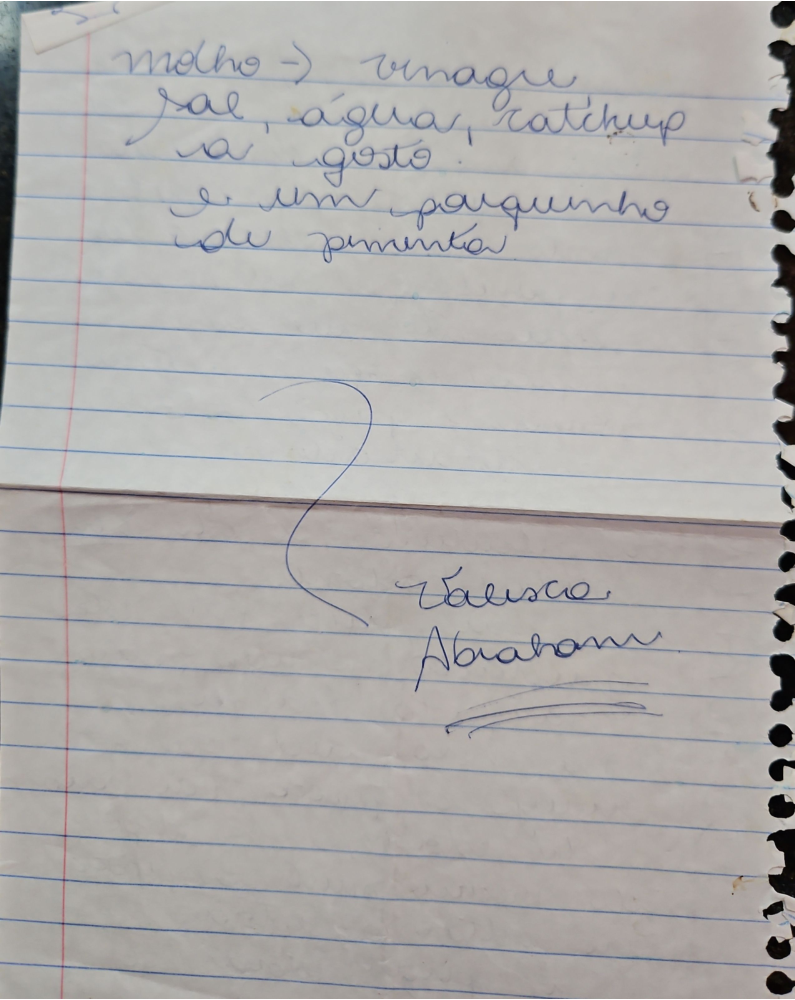 molho → vinagre,
sal, água, catchup
a gosto.
e um pouquinho
de pimenta
Valesca
Abraham